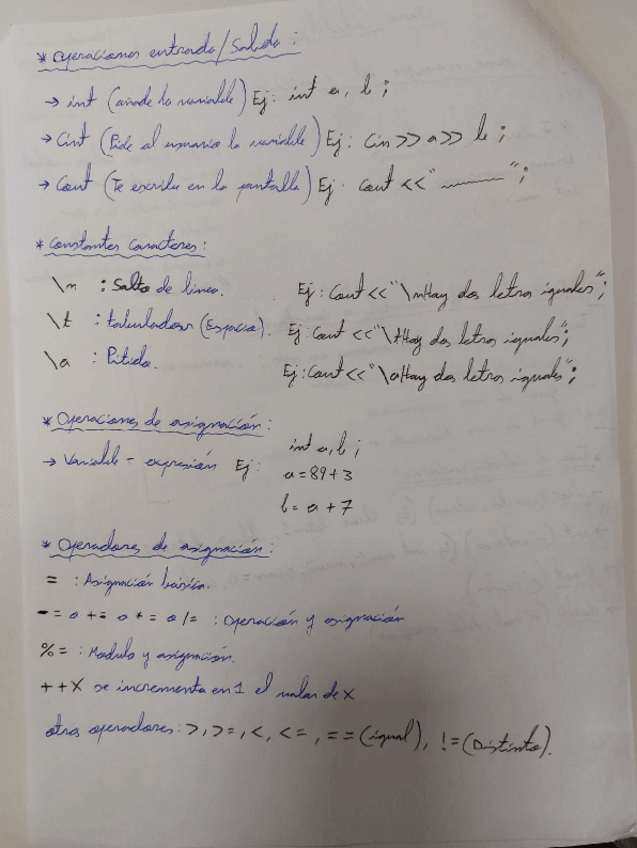 * Operaciones entrada/Salida:
→ int (añade la variable) Ej: int a, b;
→ Cint (Pide al usuario la variable) Ej: Cin >> a >> b;
→ Cout (Te escribe en la pantalla) Ej: Cout << "              ";
* Constantes Caracteres:
\n : Salto de linea. Ej: Cout << "\nHay dos letras iguales";
\t : tabulador (Espacio). Ej: Cout << "\tHay dos letras iguales";
\a : Pitido. Ej: Cout << "\aHay dos letras iguales";
* Operaciones de asignación:
→ Variable = expresión Ej: int a, b;
a = 89 + 3
b = a + 7
* Operadores de asignación:
= : Asignación básica.
-= o += o *= o /= : Operación y asignación
%= : Modulo y asignación.
++X se incrementa en 1 el valor de X
otros operadores: >, >=, <, <=, == (igual), != (Distinto).